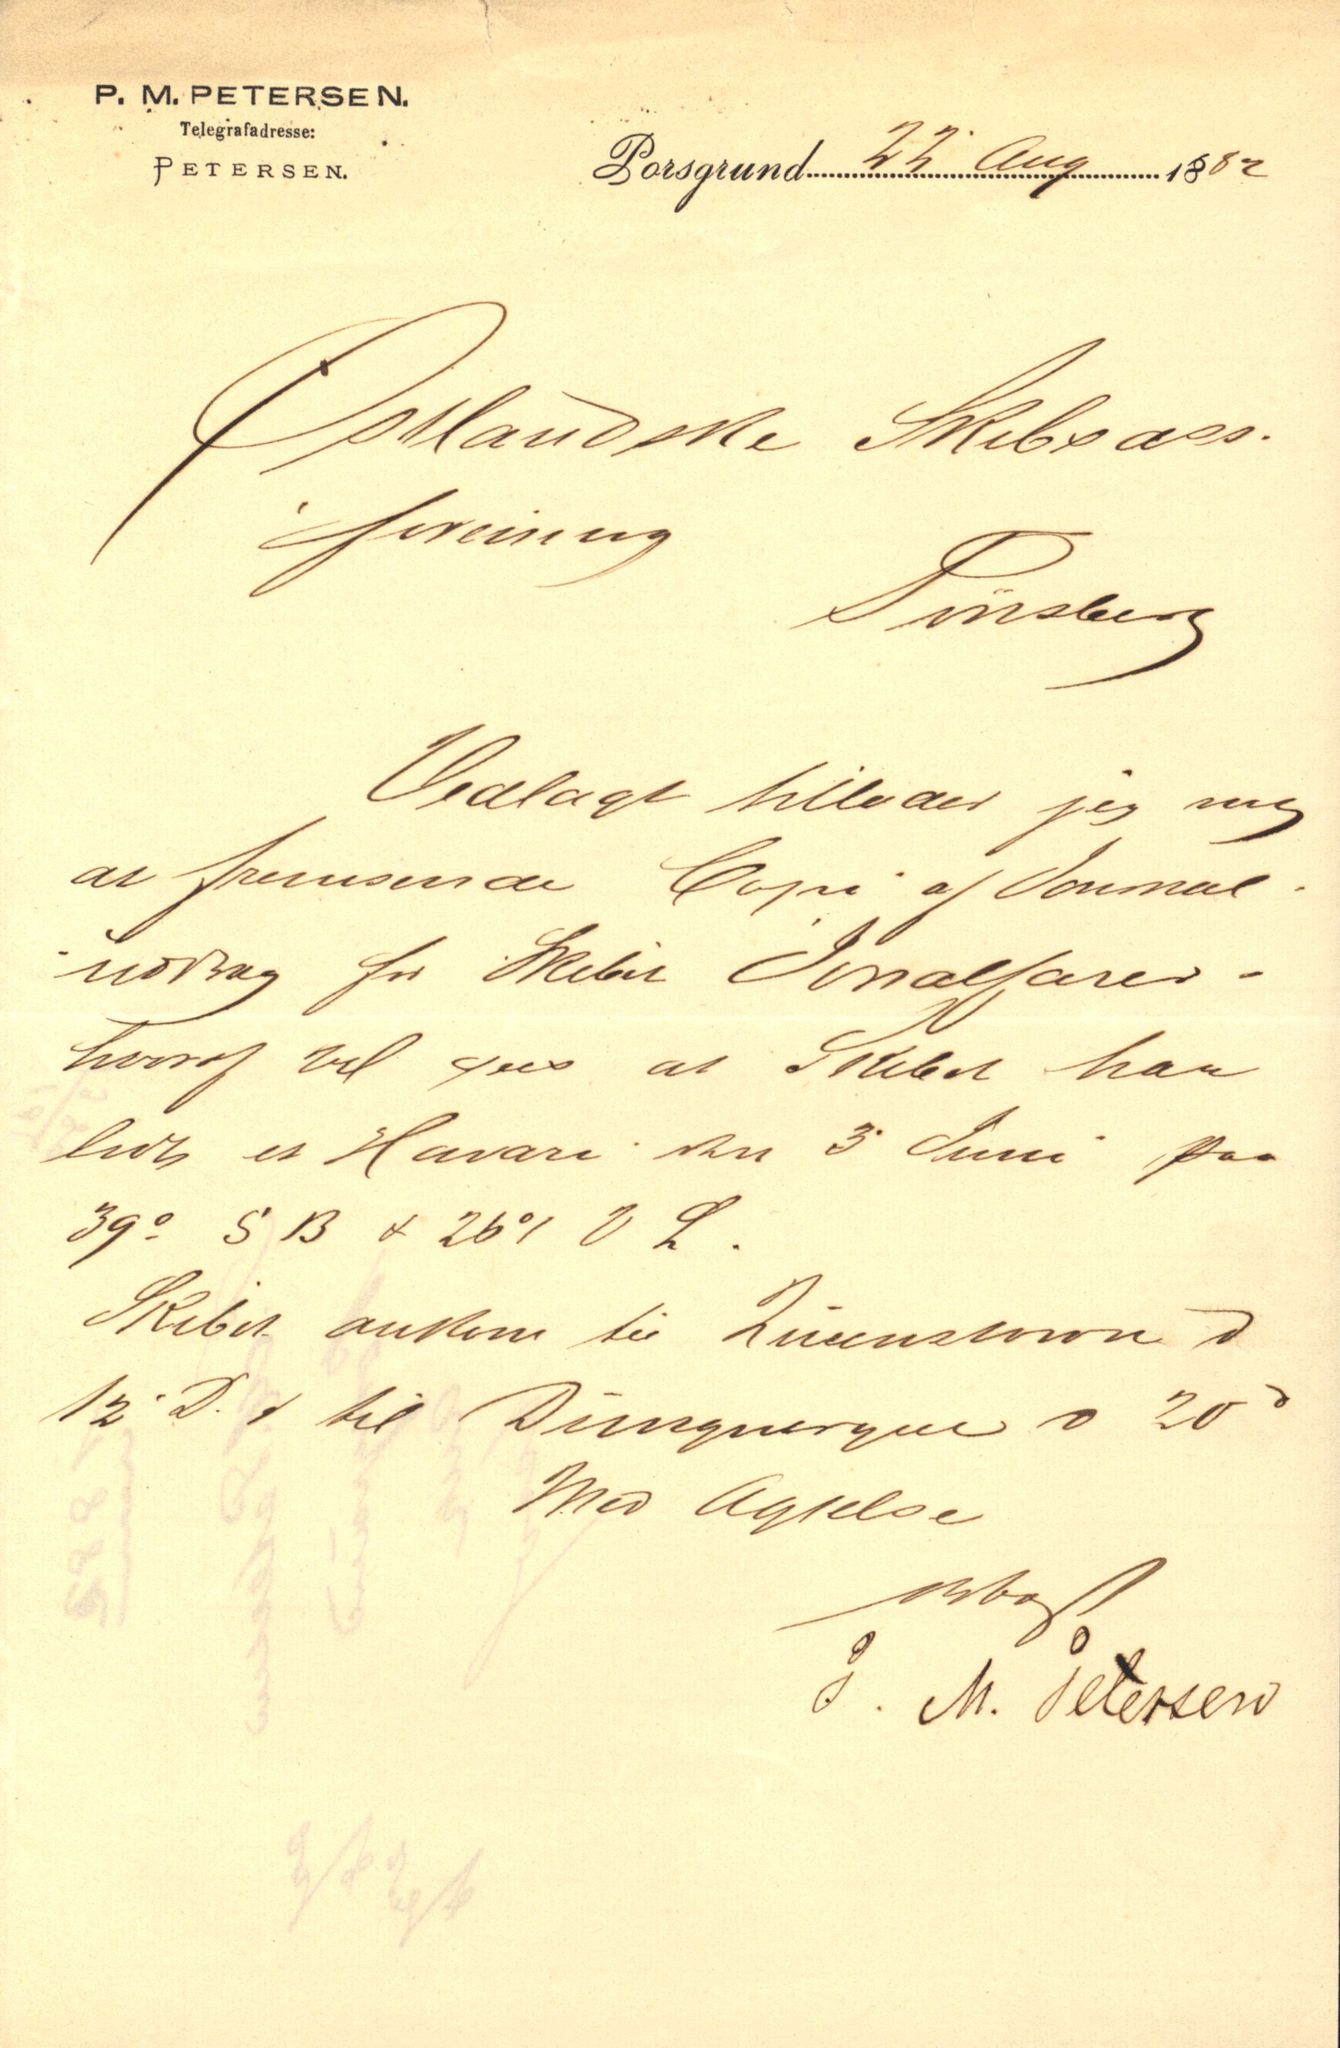 P. M. PETERSEN.
Telegrafadresse:
PETERSEN.
Porsgrund 22 Aug 1882
Østlandske Skibsass.
forening
Tønsberg
Vedlagt tillader jeg mig
at fremsende Copi af Journal-
-uddrag for Skibet Jorsalfarer-
hvoraf vil sees at Skibet har
lidt et Havari den 3 Juni paa
39° S B & 26° V L.
Skibet ankom til Queenstown d
12 D. & til Dunquerque d 20 d
Med Agtelse
ærbøgst
P. M. Petersen